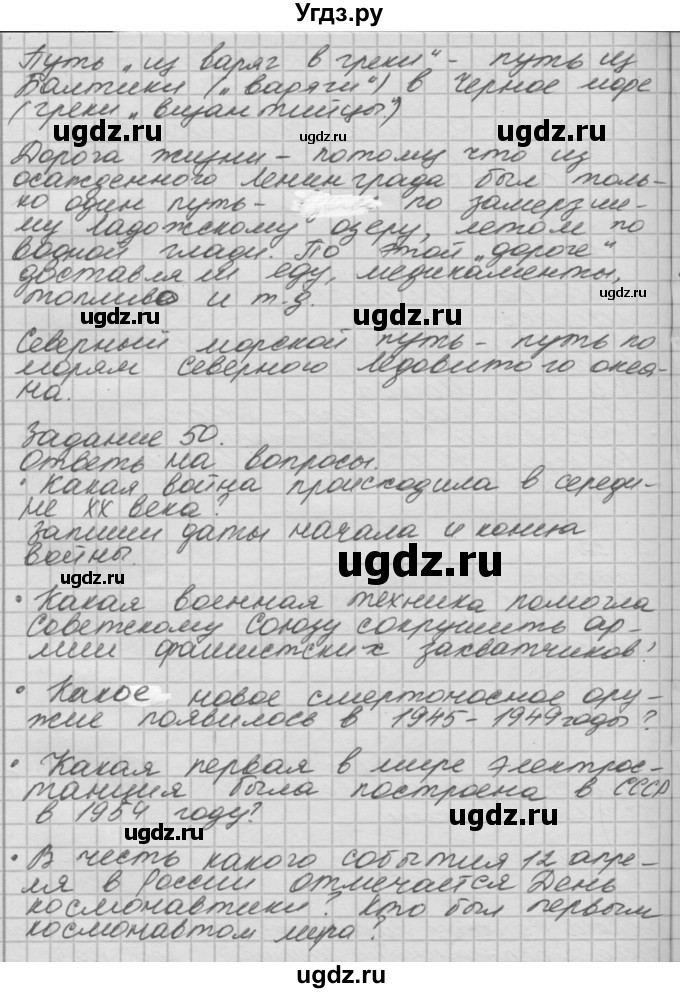 Угдз.ру
Путь „из варяг в греки“ - путь из
Балтики („варяги“) в Черное море
(греки „византийцы“)
ugdz.ru ugdz.ru ugdz.ru
Дорога жизни - потому что из
осажденного Ленинграда был толь-
ко один путь- по замерзше-
му Ладожскому озеру, летом по
водной глади. По этой „дороге“
доставляли еду, медикаменты,
топливо и т.д.
ugdz.ru ugdz.ru
Северный морской путь - путь по
морям Северного Ледовитого океа-
на.
ugdz.ru
Задание 50.
ответь на вопросы.
• Какая война происходила в середи-
не XX века?
Запиши даты начала и конца
войны.
ugdz.ru
ugdz.ru
• Какая военная техника помогла
Советскому Союзу сокрушить ар-
мии фашистских захватчиков?
ugdz.ru
• Какое новое смертоносное ору-
жие появилось в 1945-1949 годы?
ugdz.ru
• Какая первая в мире электрос-
танция была построена в СССР
в 1954 году?
ugdz.ru
ugdz.ru
• В честь какого события 12 апре-
ля в России отмечается День
космонавтики? Кто был первым
космонавтом мира?
ugdz.ru
ugdz.ru